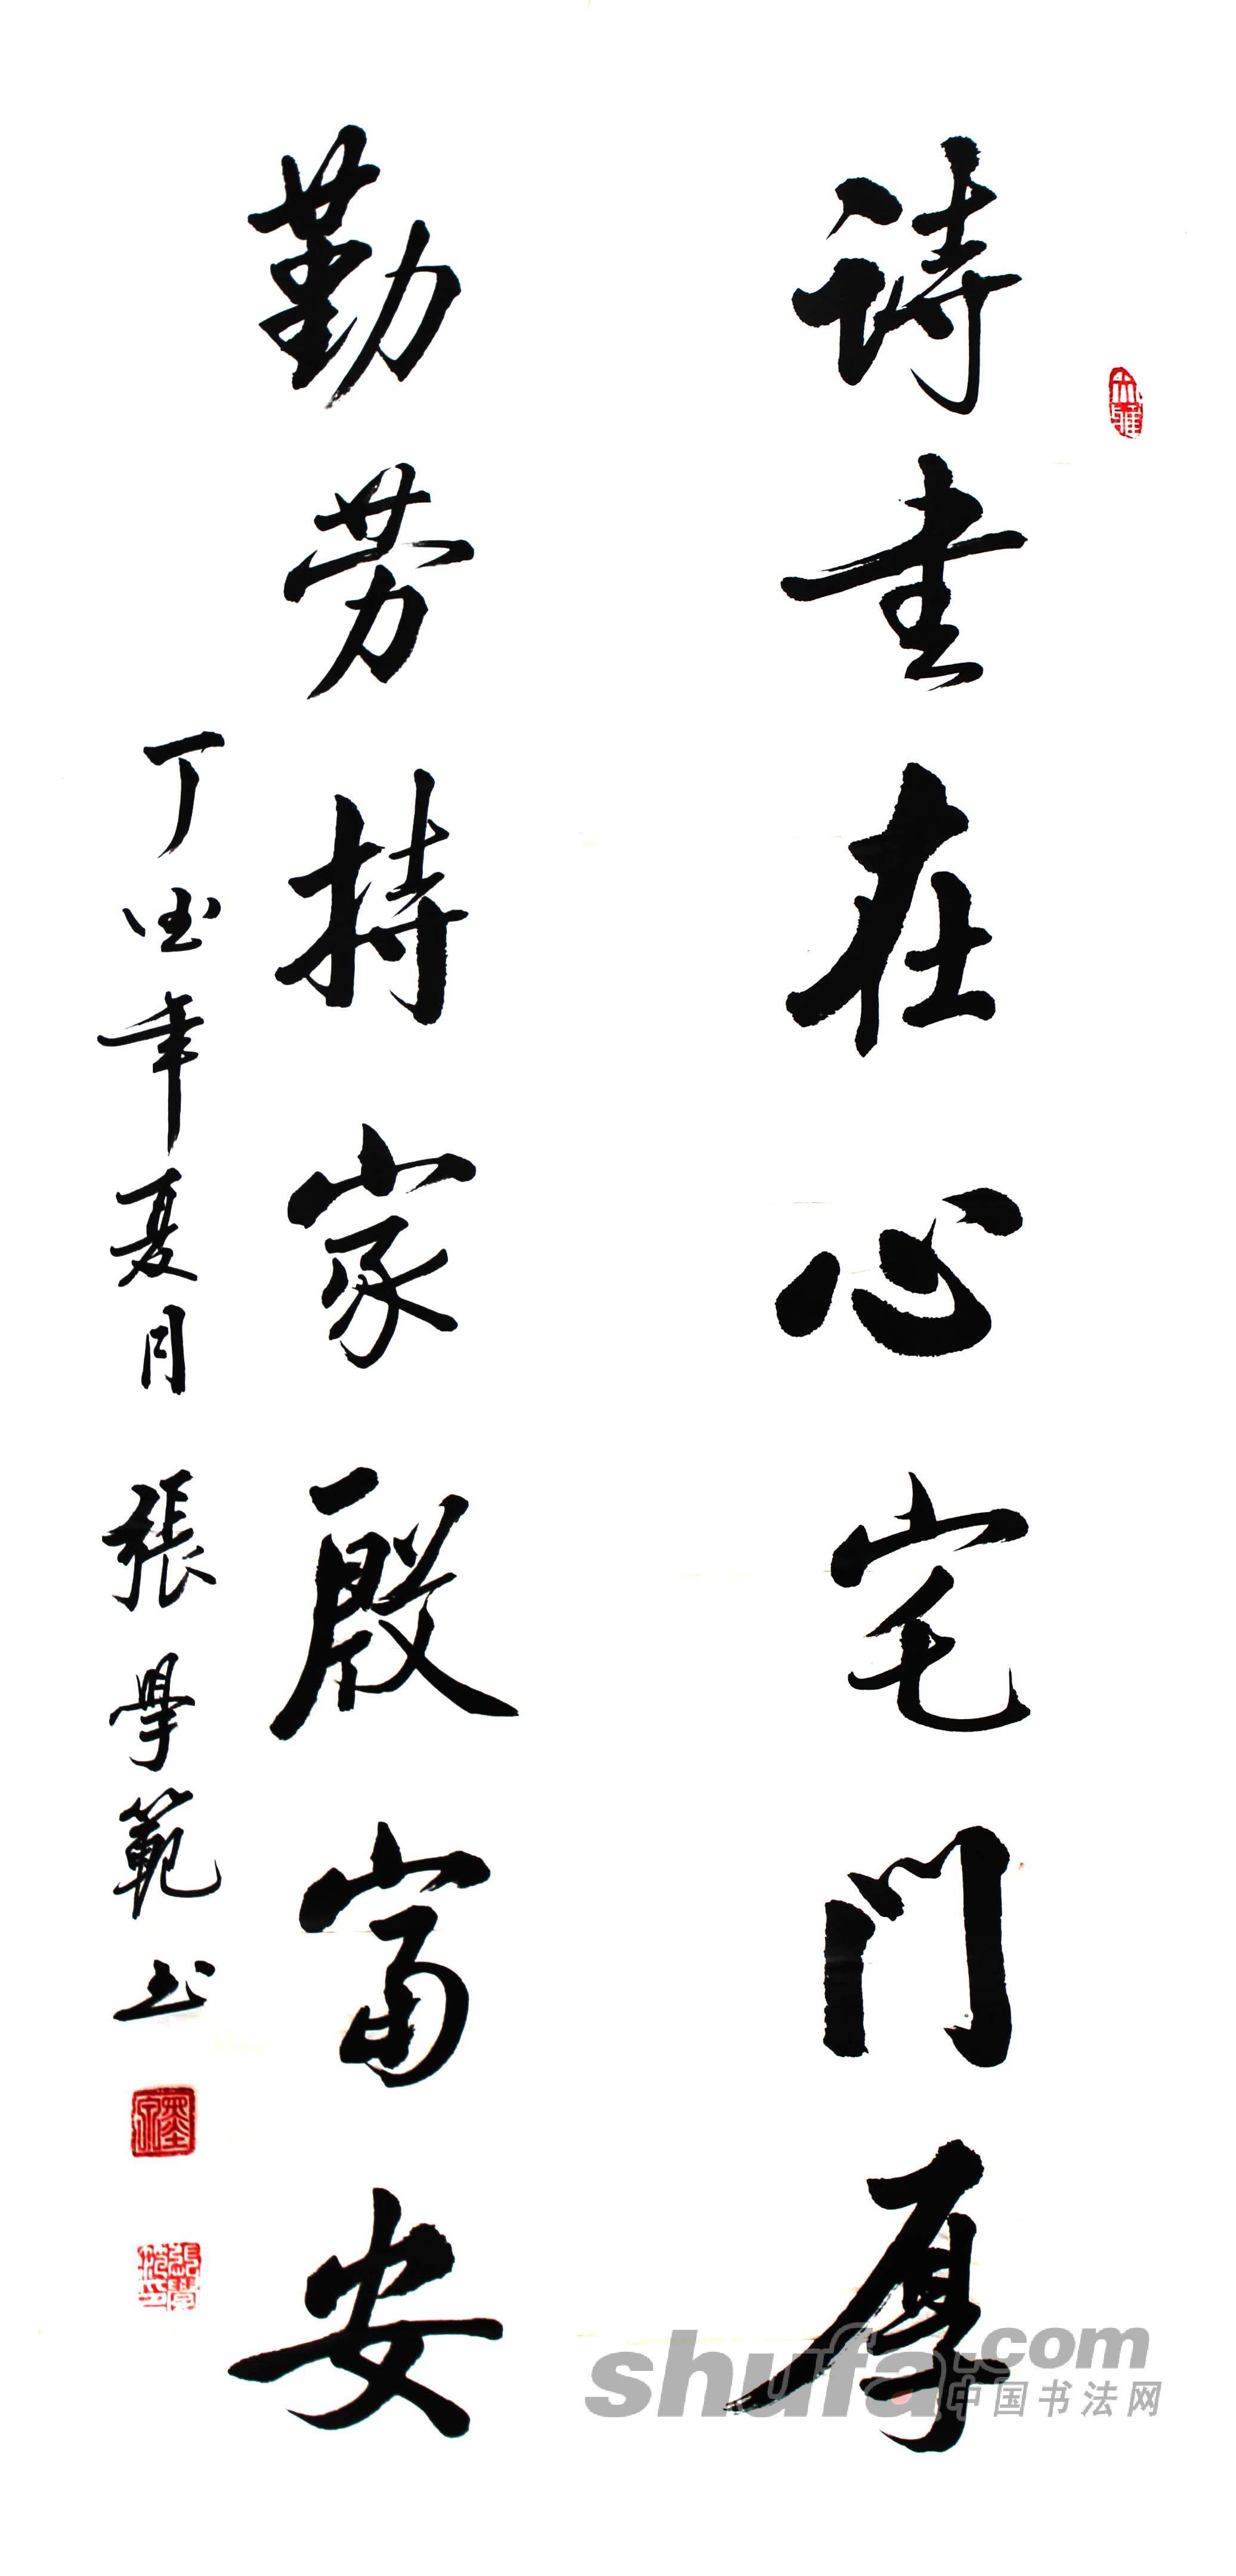 诗書在心宅门厚
勤劳持家殷富安
丁酉年夏月 張學範书
大雅
shufa.com
中国书法网